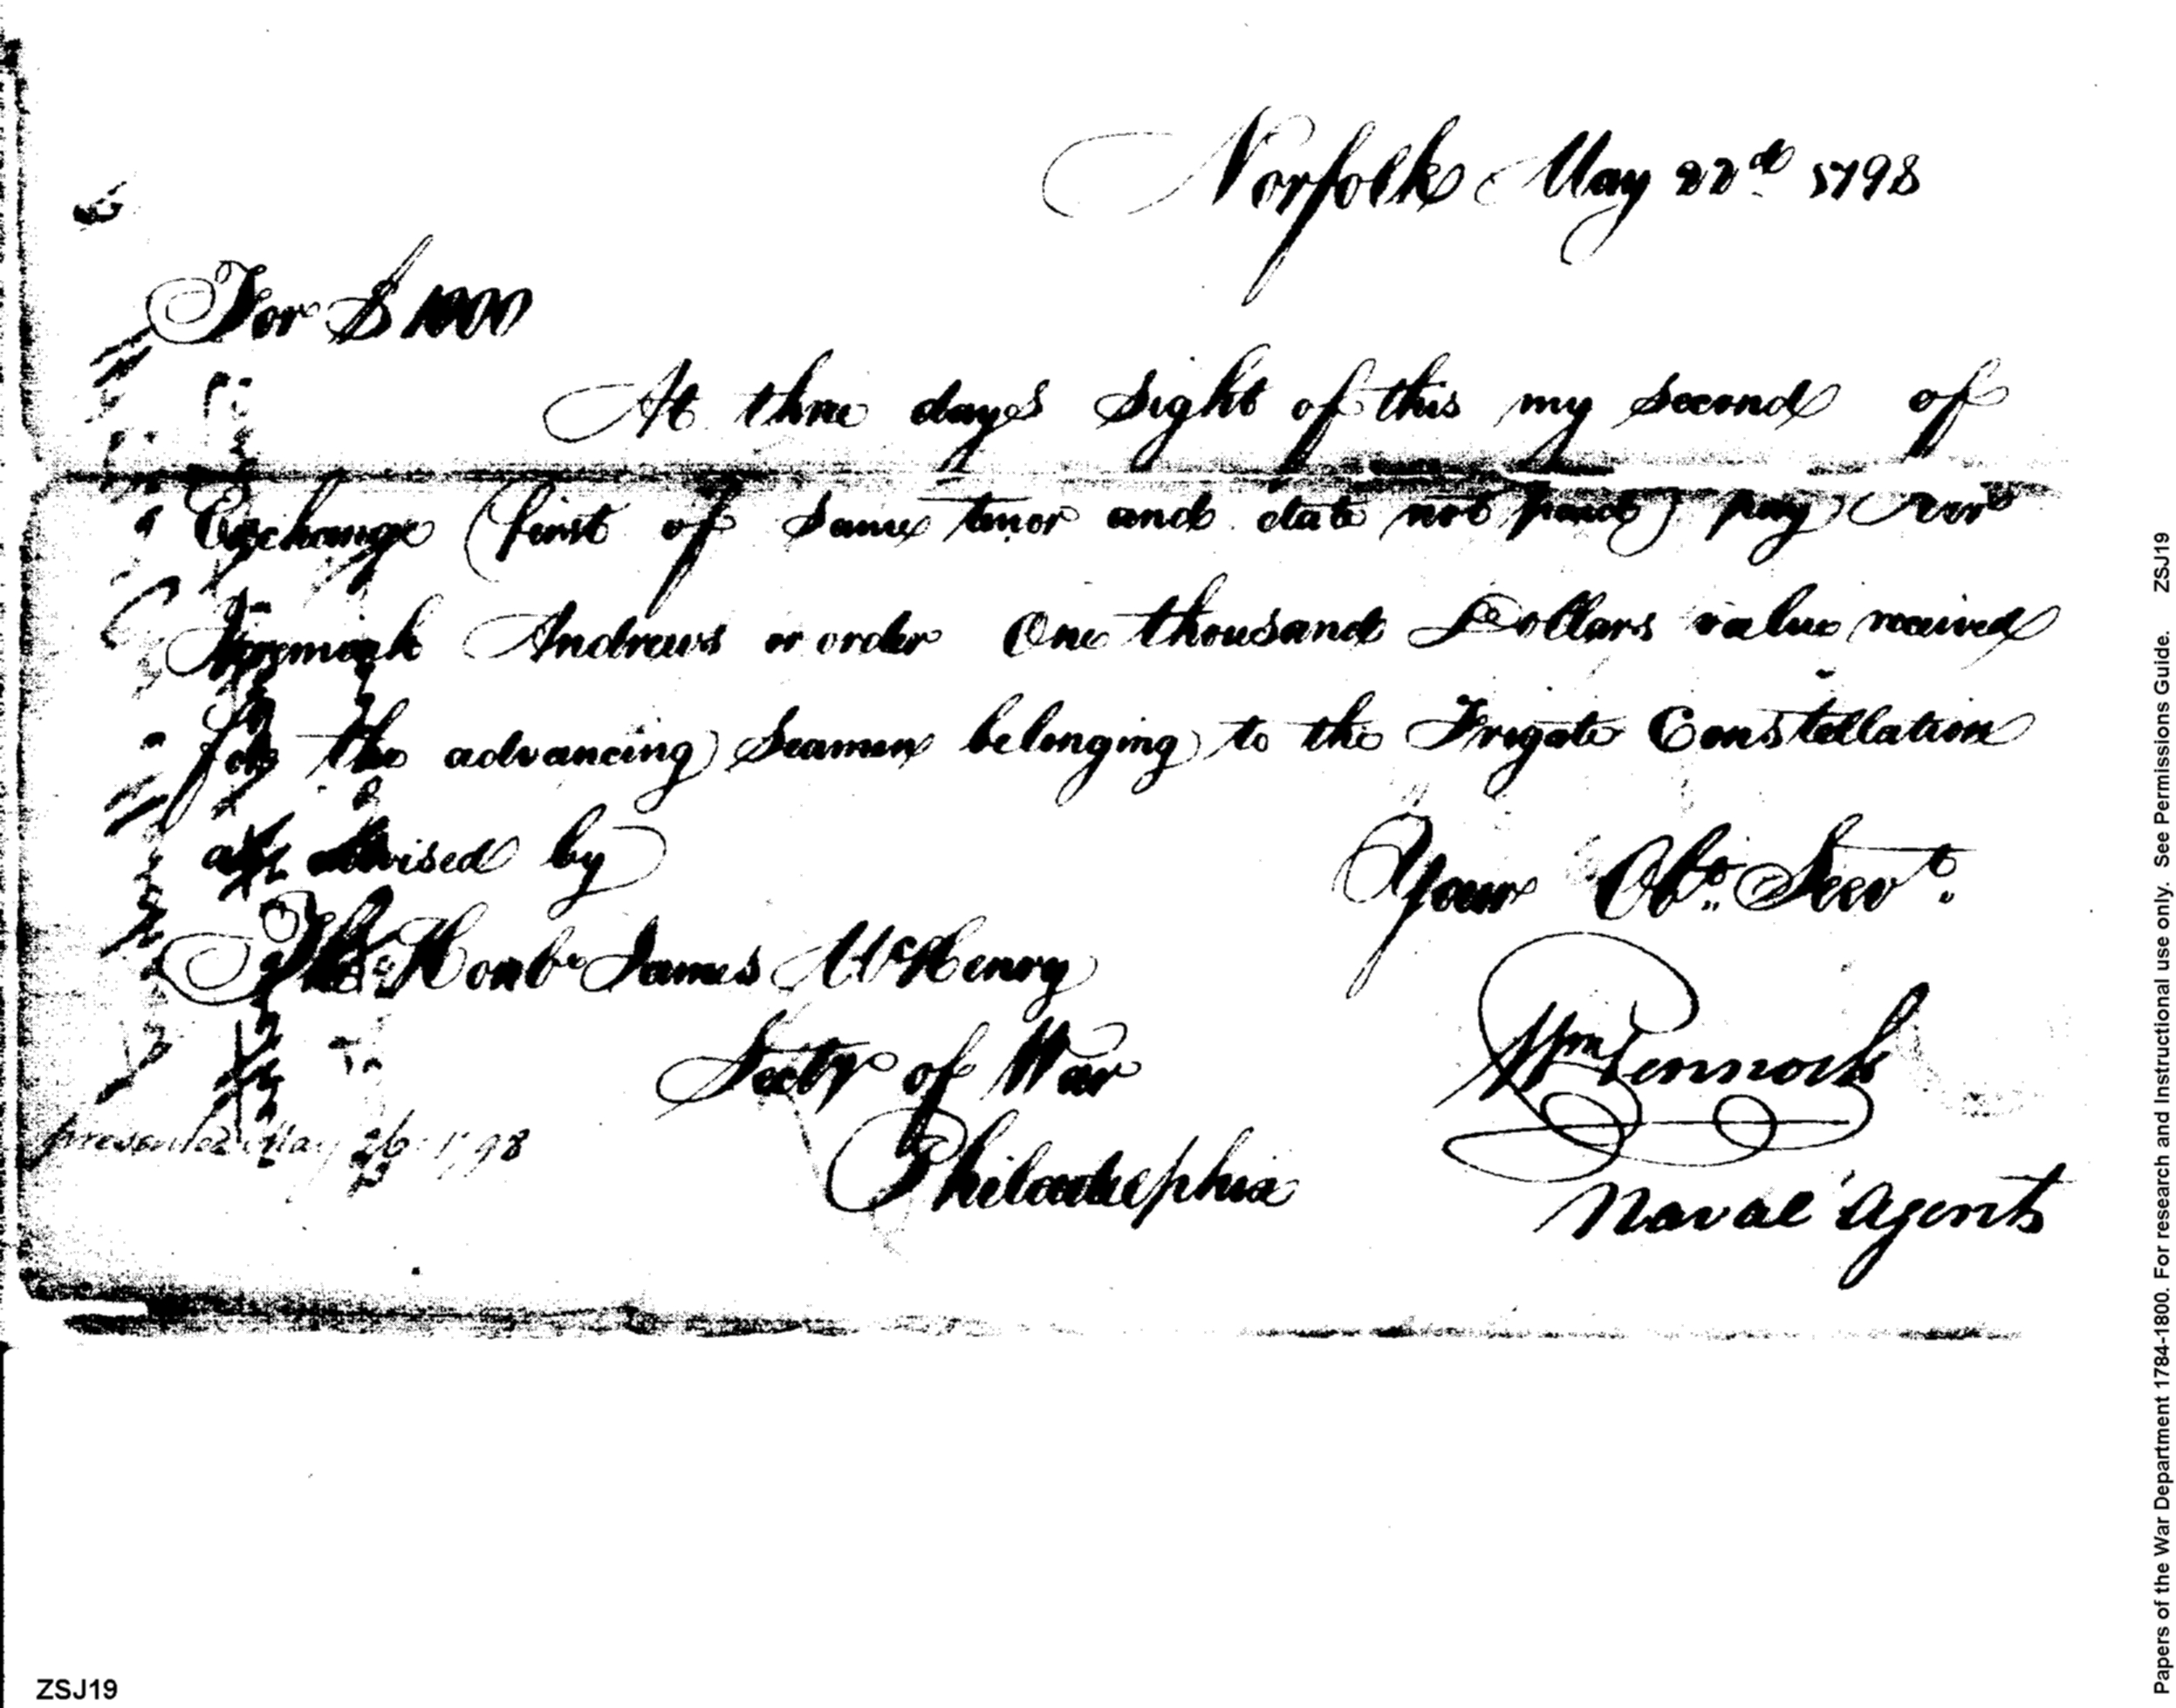 Norfolk May 22d 1798
For $1000
At three days Sight of this my Second of
Exchange (first of Same tenor and date not paid) pay
Jeremiah Andrews or order One thousand Dollars value received
for the advancing Seamen belonging to the Frigate Constellation
as advised by
Your Obt. Servt.
The Honbe James McHenry
Secty of War
Wm Pennock
presented May 26 1798
Philadelphia
Naval Agent
ZSJ19
Papers of the War Department 1784-1800. For research and Instructional use only. See Permissions Guide. ZSJ19